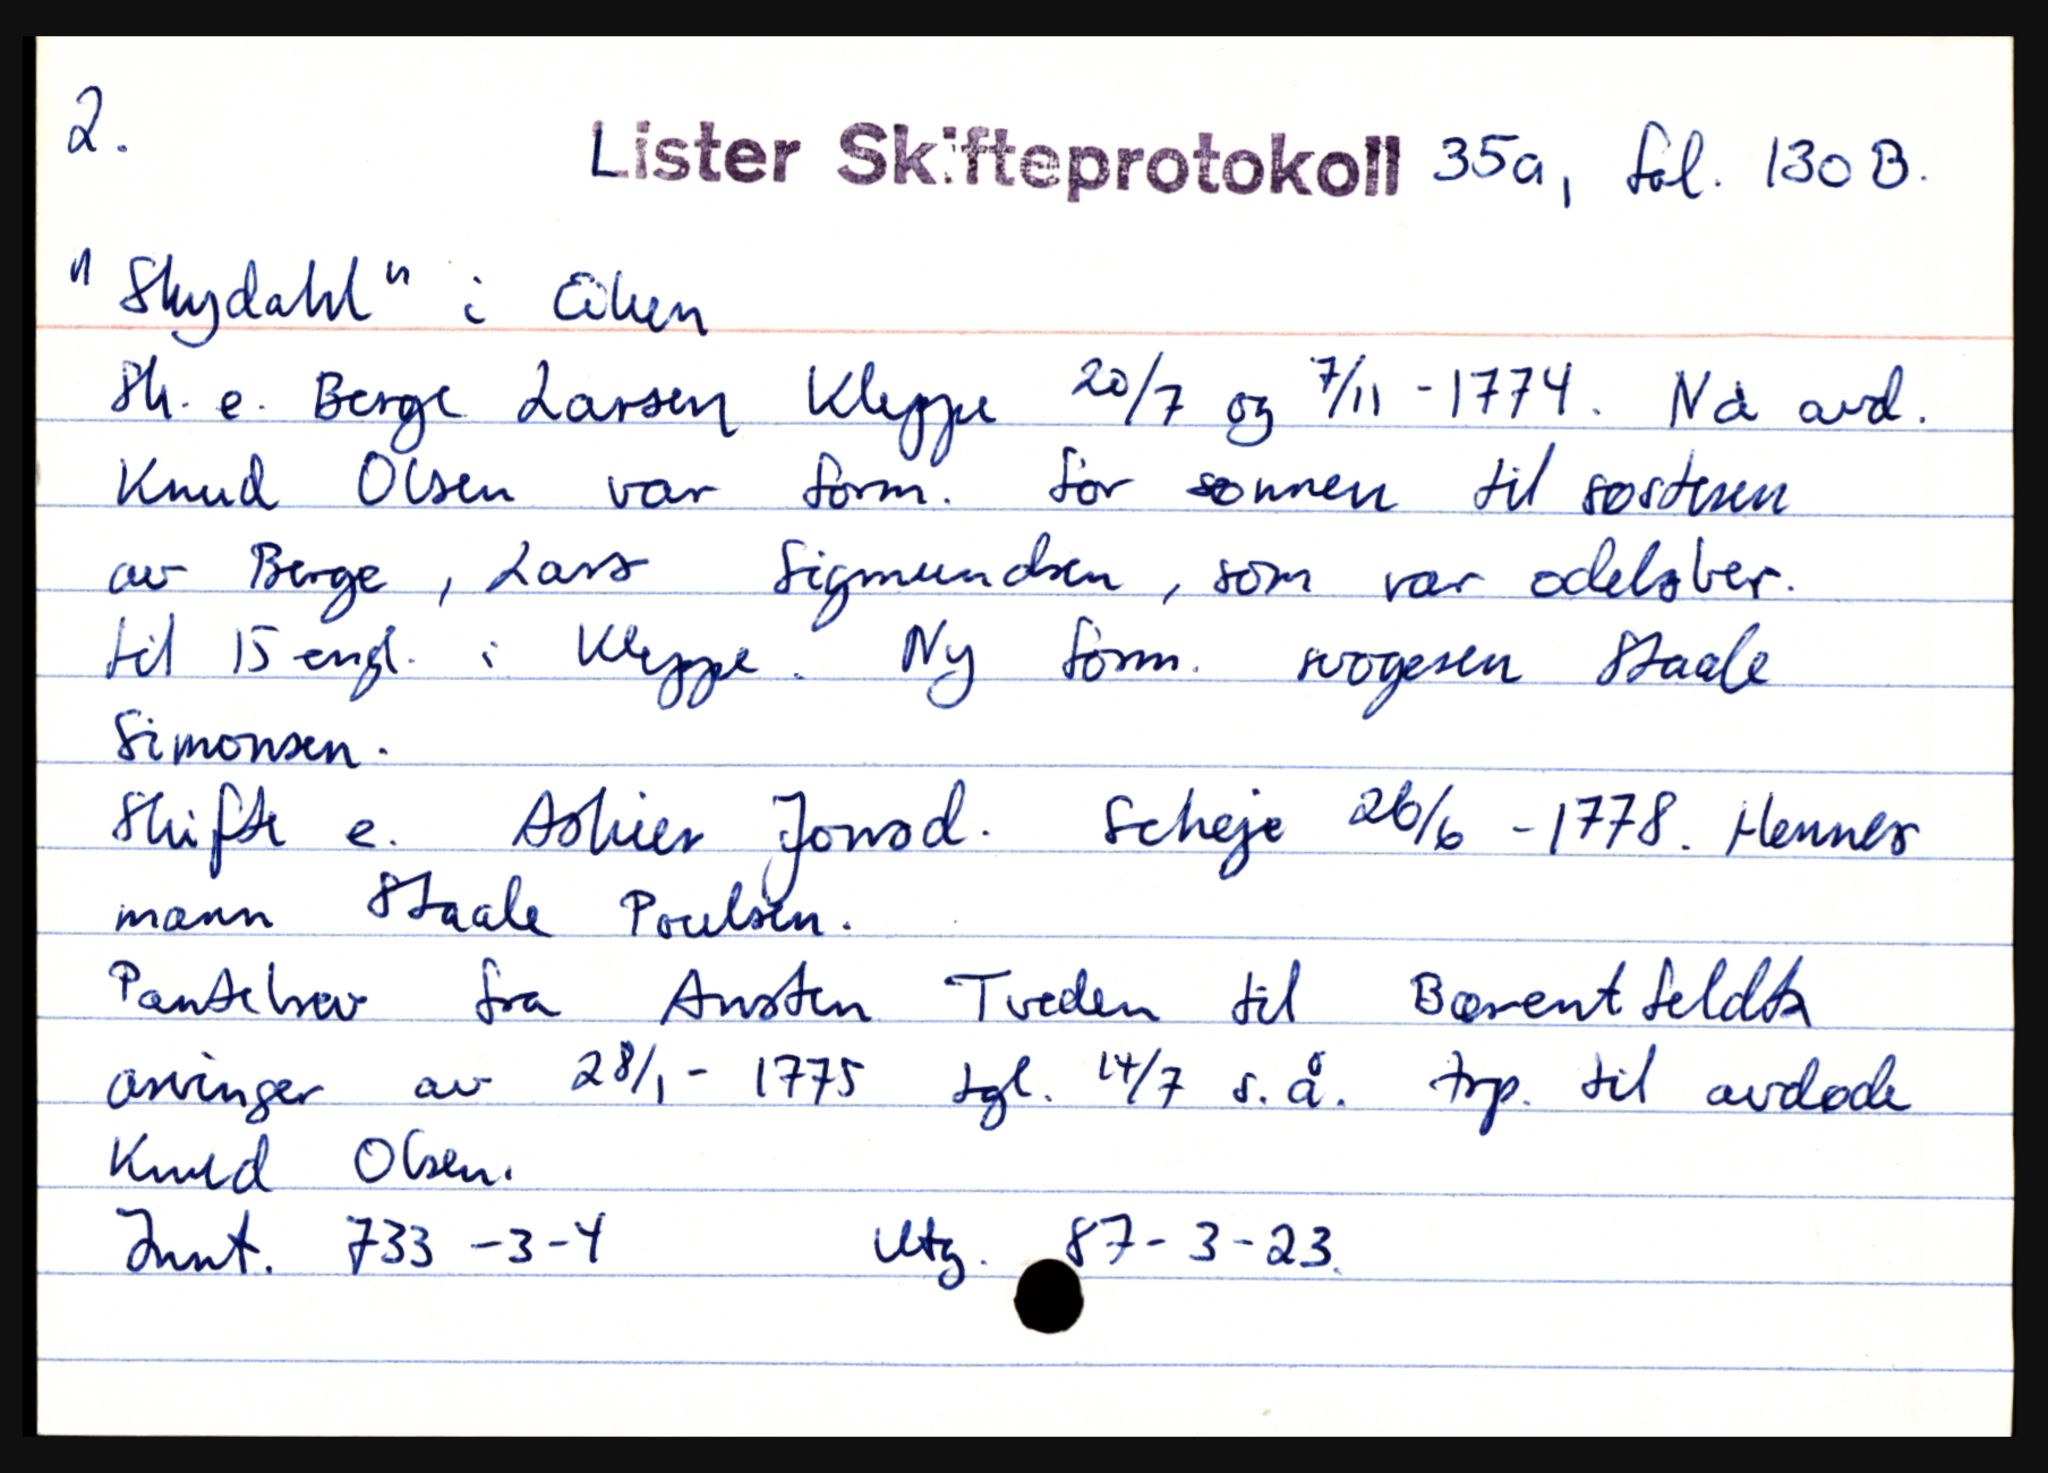 2.
Lister Skifteprotokoll 35a, fol. 130 B.
"Skydahl" i Eiken
Sk. e. Berge Larsen Kleppe 20/7 og 7/11 - 1774. Nå avd.
Knud Olsen var form. for sønnen til søsteren
av Berge, Lars Sigmundsen, som var odelsber.
til 15 engl. i Kleppe. Ny form. svogeren Staale
Simonsen.
Skifte e. Askier Jonsd. Scheje 26/6 - 1778. Hennes
mann Staale Poulsen.
Pantebrev fra Ansten Tveden til Bærentfeldts
arvinger av 28/1 - 1775 tgl. 14/7 s.å. trp. til avdøde
Knud Olsen.
Innt. 733 - 3 - 4 Utg. 87 - 3 - 23.